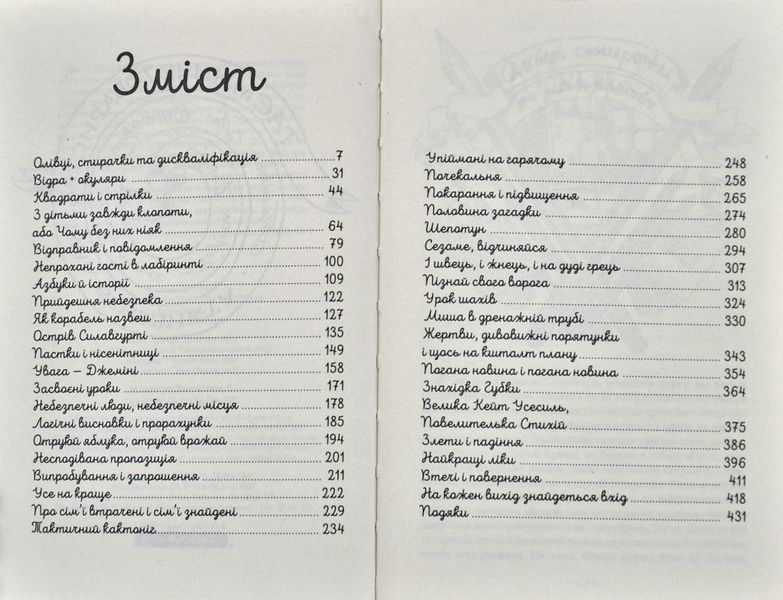 Зміст
Олівці, стирачки та дискваліфікація 7
Відра + окуляри 31
Квадрати і стрілки 44
З дітьми завжди клопоти,
або Чому без них ніяк 64
Відправник і повідомлення 79
Непрохані гості в лабіринті 100
Азбуки й історії 109
Прийдешня небезпека 122
Як корабель назвеш 127
Острів Силавгурті 135
Пастки і нісенітниці 149
Увага — Джеміні 158
Засвоєні уроки 171
Небезпечні люди, небезпечні місця 178
Логічні висновки і прорахунки 185
Отруюй яблука, отруюй врожай 194
Несподівана пропозиція 201
Випробування і запрошення 211
Усе на краще 222
Про сім'ї втрачені і сім'ї знайдені 229
Тактичний кактоніг 234
Упіймані на гарячому 248
Почекальня 258
Покарання і підвищення 265
Половина загадки 274
Шепотун 280
Сезаме, відчиняйся 294
І швець, і жнець, і на дуді грець 307
Пізнай свого ворога 313
Урок шахів 324
Миша в дренажній трубі 330
Жертви, дивовижні порятунки
і щось на кшталт плану 343
Погана новина і погана новина 354
Знахідка Губки 364
Велика Кейт Усесиль,
Повелителька Стихій 375
Злети і падіння 386
Найкращі ліки 396
Втечі і повернення 411
На кожен вихід знайдеться вхід 418
Подяки 431